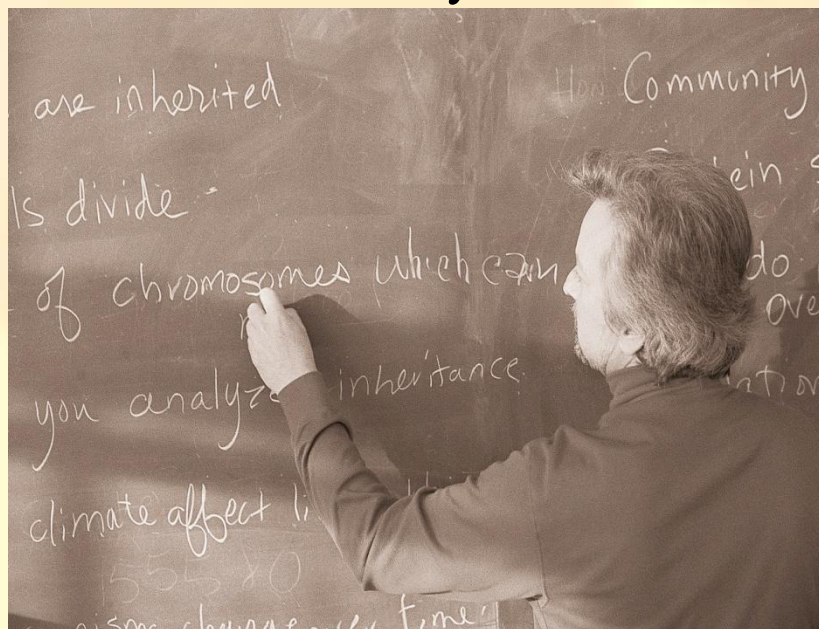 are inherited
Community
ls divide
ein
of chromosomes which can
do
ove
you analyze inheritance
climate affect li
change time